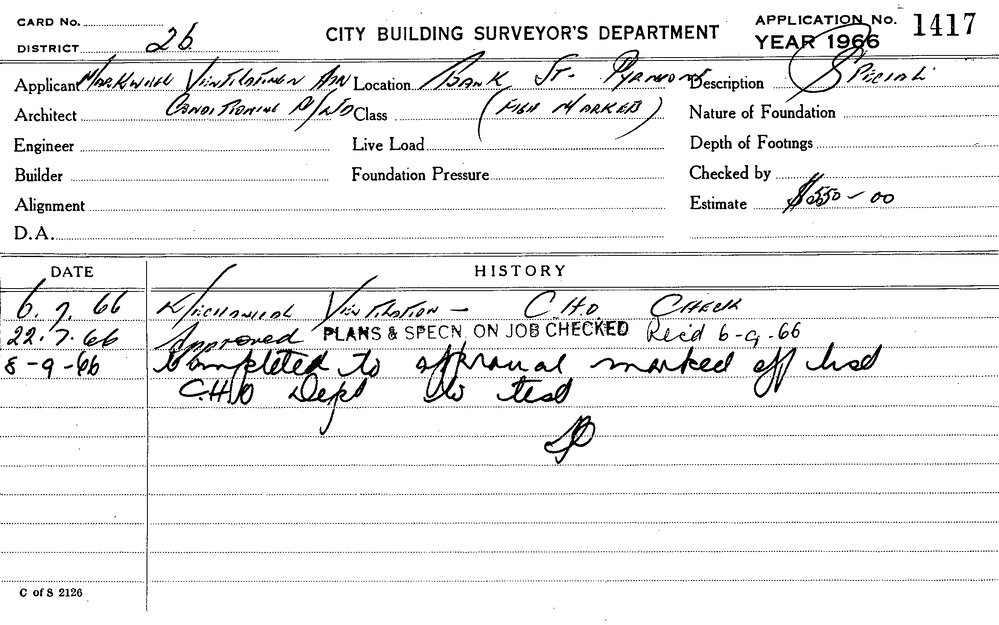 CARD No.
DISTRICT 2b
CITY BUILDING SURVEYOR'S DEPARTMENT
APPLICATION No. 1417
YEAR 1966
Applicant MARKWELL VENTILATION AND Location BANK ST. PYRMONT Description SPECIAL
Architect CONDITIONING P/LTD Class (FISH MARKET) Nature of Foundation
Engineer Live Load Depth of Footings
Builder Foundation Pressure Checked by
Alignment Estimate $550-00
D.A.
DATE HISTORY
6.7.66 MECHANICAL VENTILATION — C.H.O CHECK
22.7.66 Approved PLANS & SPECN. ON JOB CHECKED Rec'd 6-9-66
8-9-66 Completed to approval marked off list
C.H.O Dept to test
C of S 2126